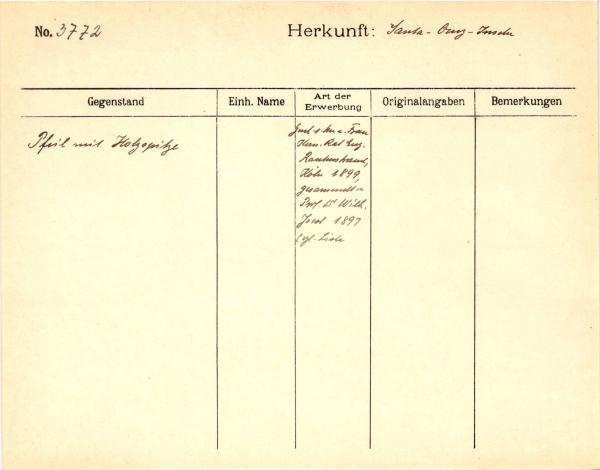 No. 3772
Herkunft: Santa-Cruz-Inseln
Gegenstand
Einh. Name
Art der
Erwerbung
Originalangaben
Bemerkungen
Pfeil mit Holzspitze
Frau
Rautenstrauch,
Köln 1899,
Prof. Dr Wilh.
Joest 1897
vgl. Liste